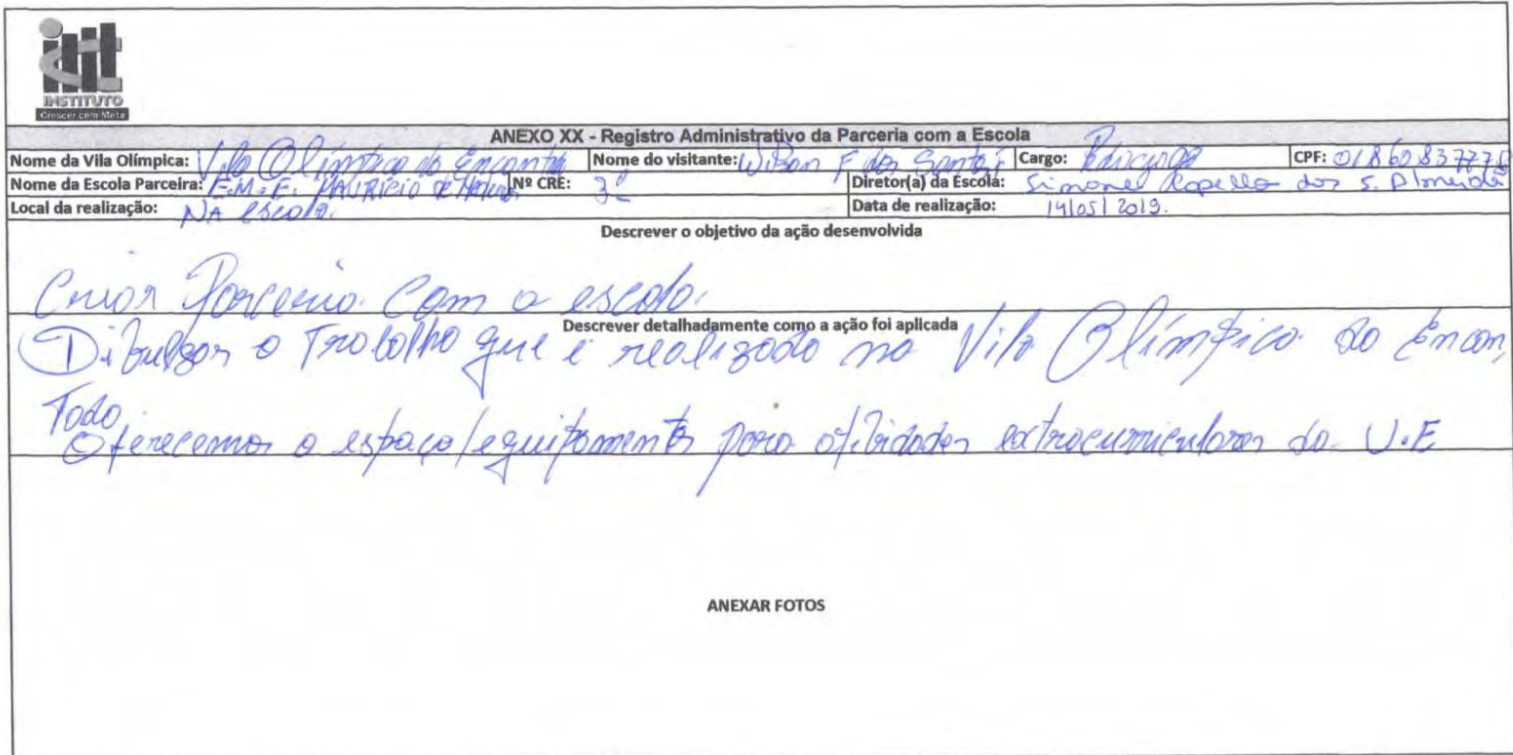 INSTITUTO
Crescer com Meta
ANEXO XX - Registro Administrativo da Parceria com a Escola
Nome da Vila Olímpica: Vila Olímpica do Encantado Nome do visitante: Wilson F dos Santos Cargo: CPF:
Nome da Escola Parceira: E.M. Nº CRE: 3ª Diretor(a) da Escola: Simone dos S. Almeida
Local da realização: NA escola. Data de realização: 14/05/2019.
Descrever o objetivo da ação desenvolvida
Criar Parceria com a escola.
Descrever detalhadamente como a ação foi aplicada
Divulgar o Trabalho que é realizado na Vila Olímpica do Encan,
Tado.
Oferecemos o espaço/equipamentos para atividades extracurriculares da U.E
ANEXAR FOTOS